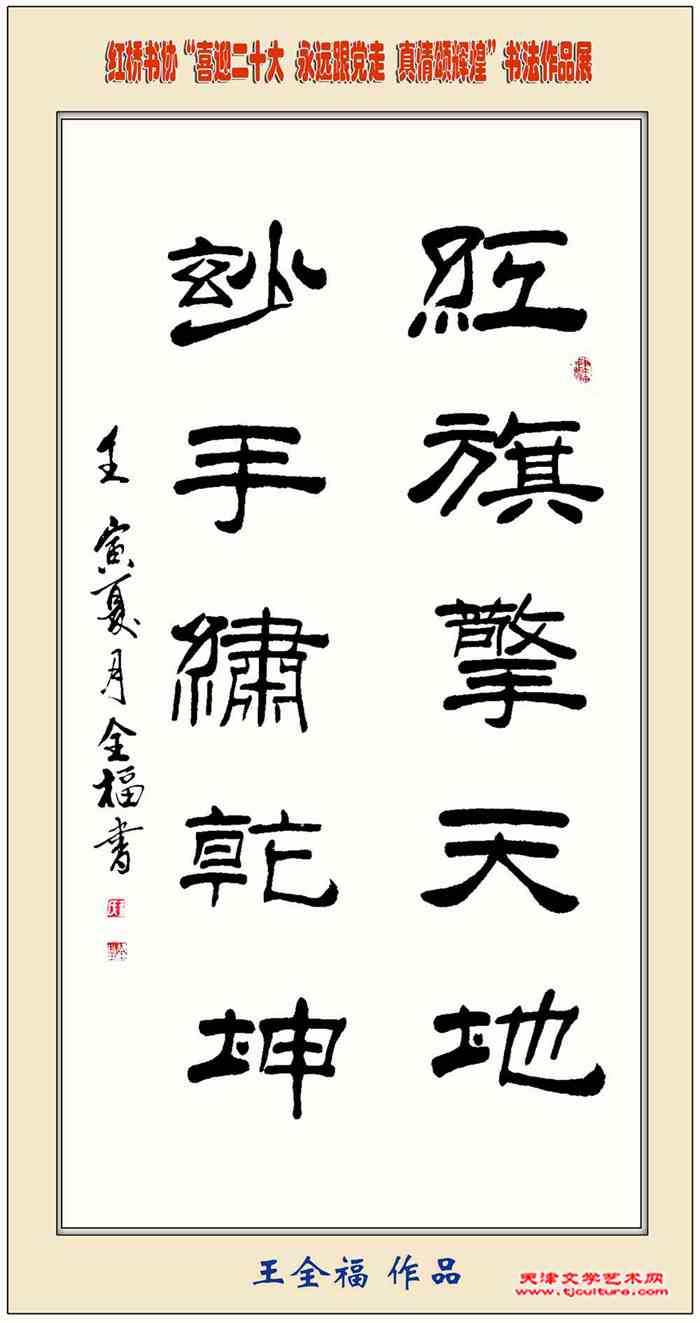 红桥书协“喜迎二十大 永远跟党走 真情颂辉煌”书法作品展
紅旗擎天地
玅手繡乾坤
壬寅夏月全福书
王全福 作品
天津文学艺术网
www.tjculture.com